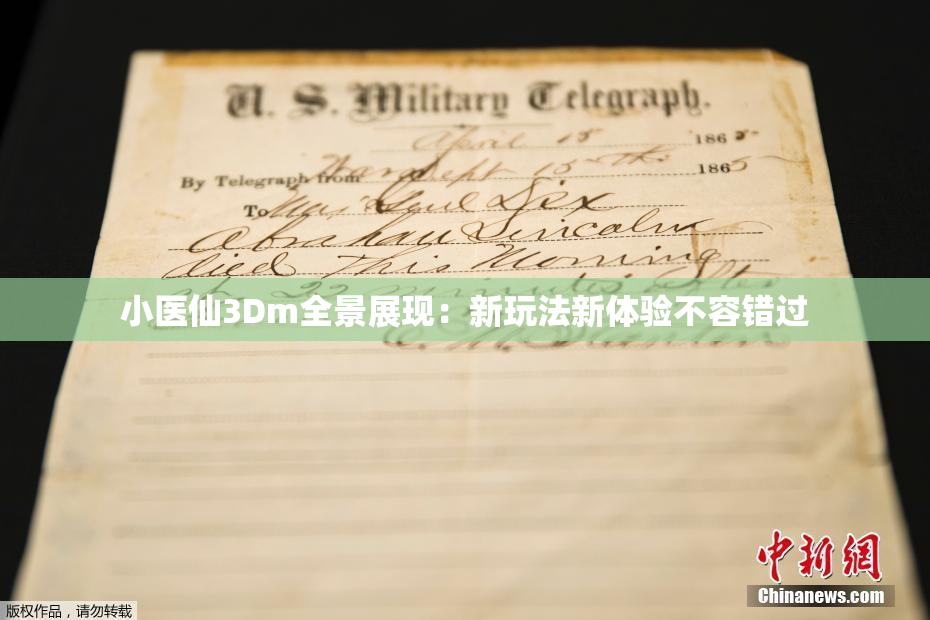 U. S. Military Telegraph.
April 15 1865
By Telegraph from War Dept 15th 1865
To Maj Genl Dix
Abraham Lincoln
died This Morning
at 22 minutes after
小医仙3Dm全景展现：新玩法新体验不容错过
E. M. Stanton
中新网
Chinanews.com
版权作品，请勿转载